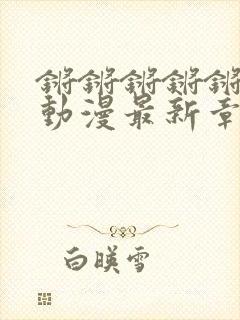 锵锵锵锵锵
動漫最新章
白暎雪